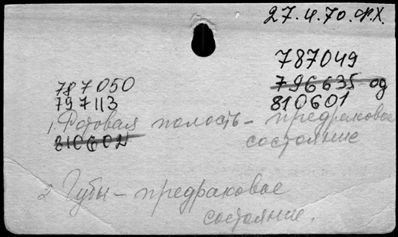 27.4.70. ФХ.
787049
787050
796635 од
797113
810601
1. Ротовая полость – предраковое
810602
состояние
2. Губы – предраковое
состояние.